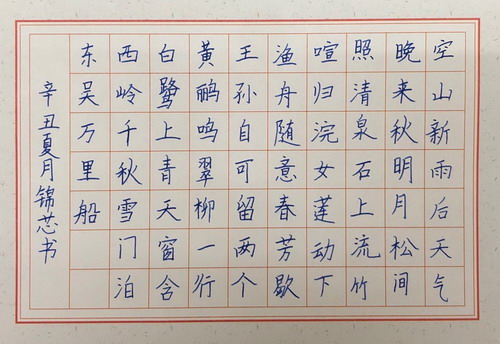 空山新雨后天气
晚来秋明月松间
照清泉石上流竹
喧归浣女莲动下
渔舟随意春芳歇
王孙自可留两个
黄鹂鸣翠柳一行
白鹭上青天窗含
西岭千秋雪门泊
东吴万里船
辛丑夏月锦芯书